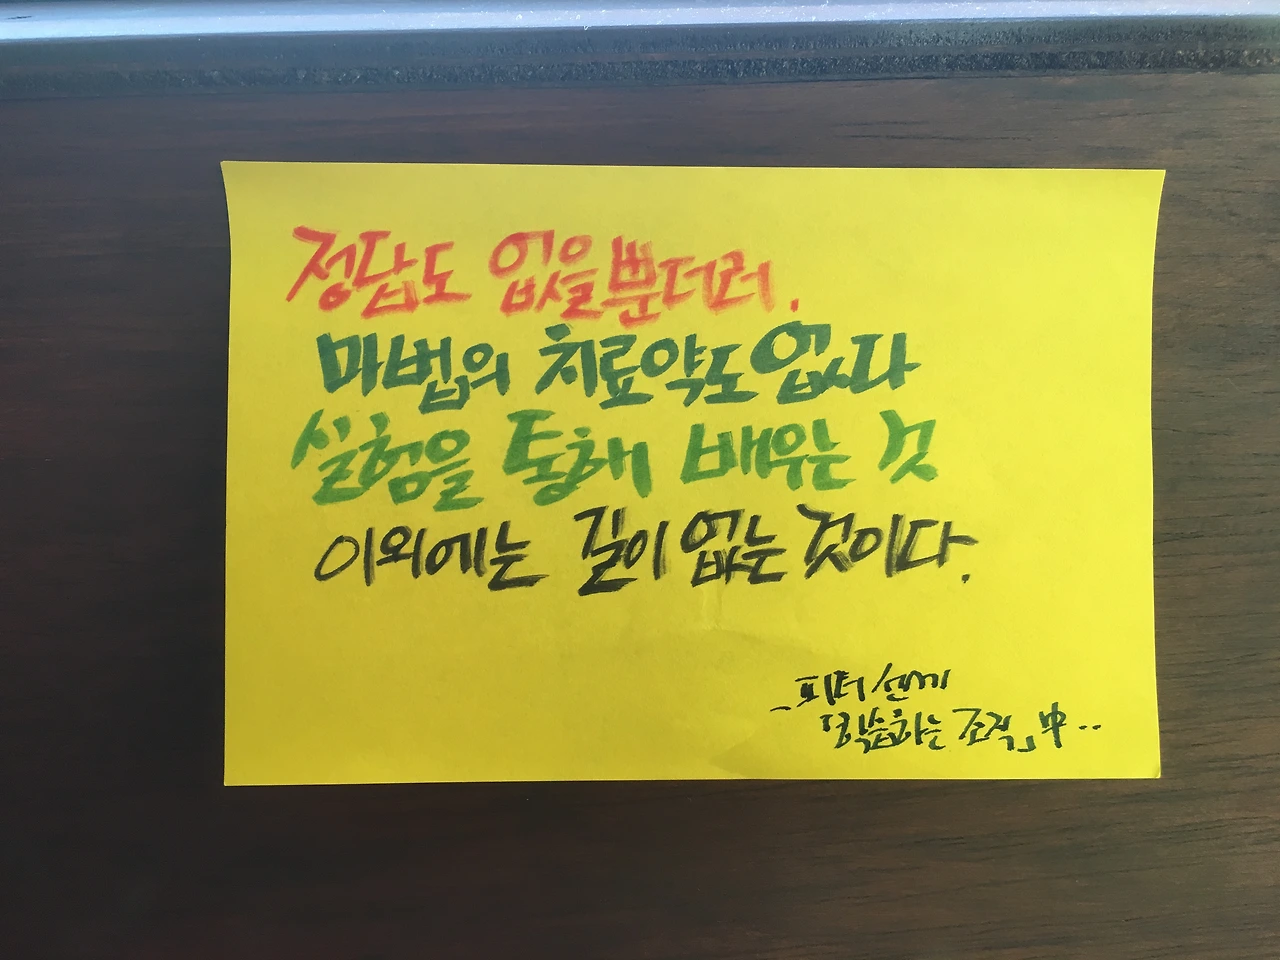 정답도 없을뿐더러.
마법의 치료약도 없다
실험을 통해 배우는 것
이외에는 길이 없는 것이다.
- 피터 센게
「학습하는 조직」中..